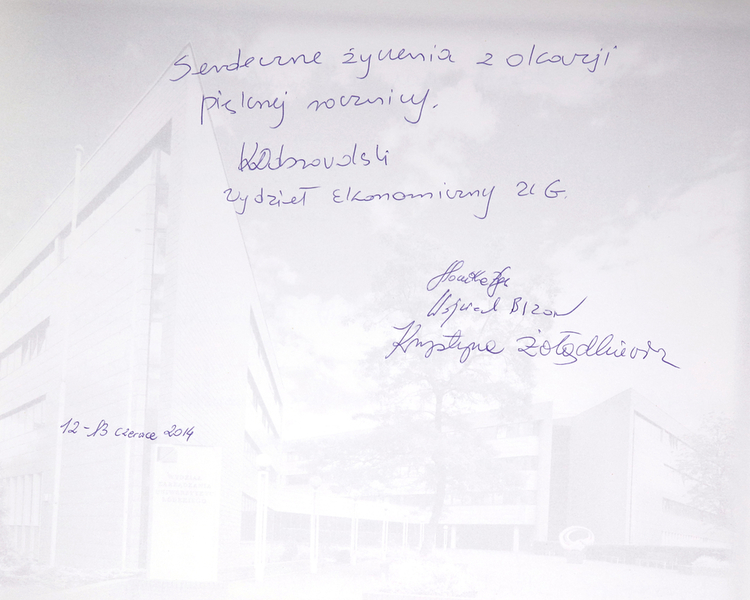 Serdeczne życzenia z okazji
pięknej rocznicy.
Wydział Ekonomiczny UG.
Wojciech Bizon
Krystyna Żołądkiewicz
12-13 czerwca 2014